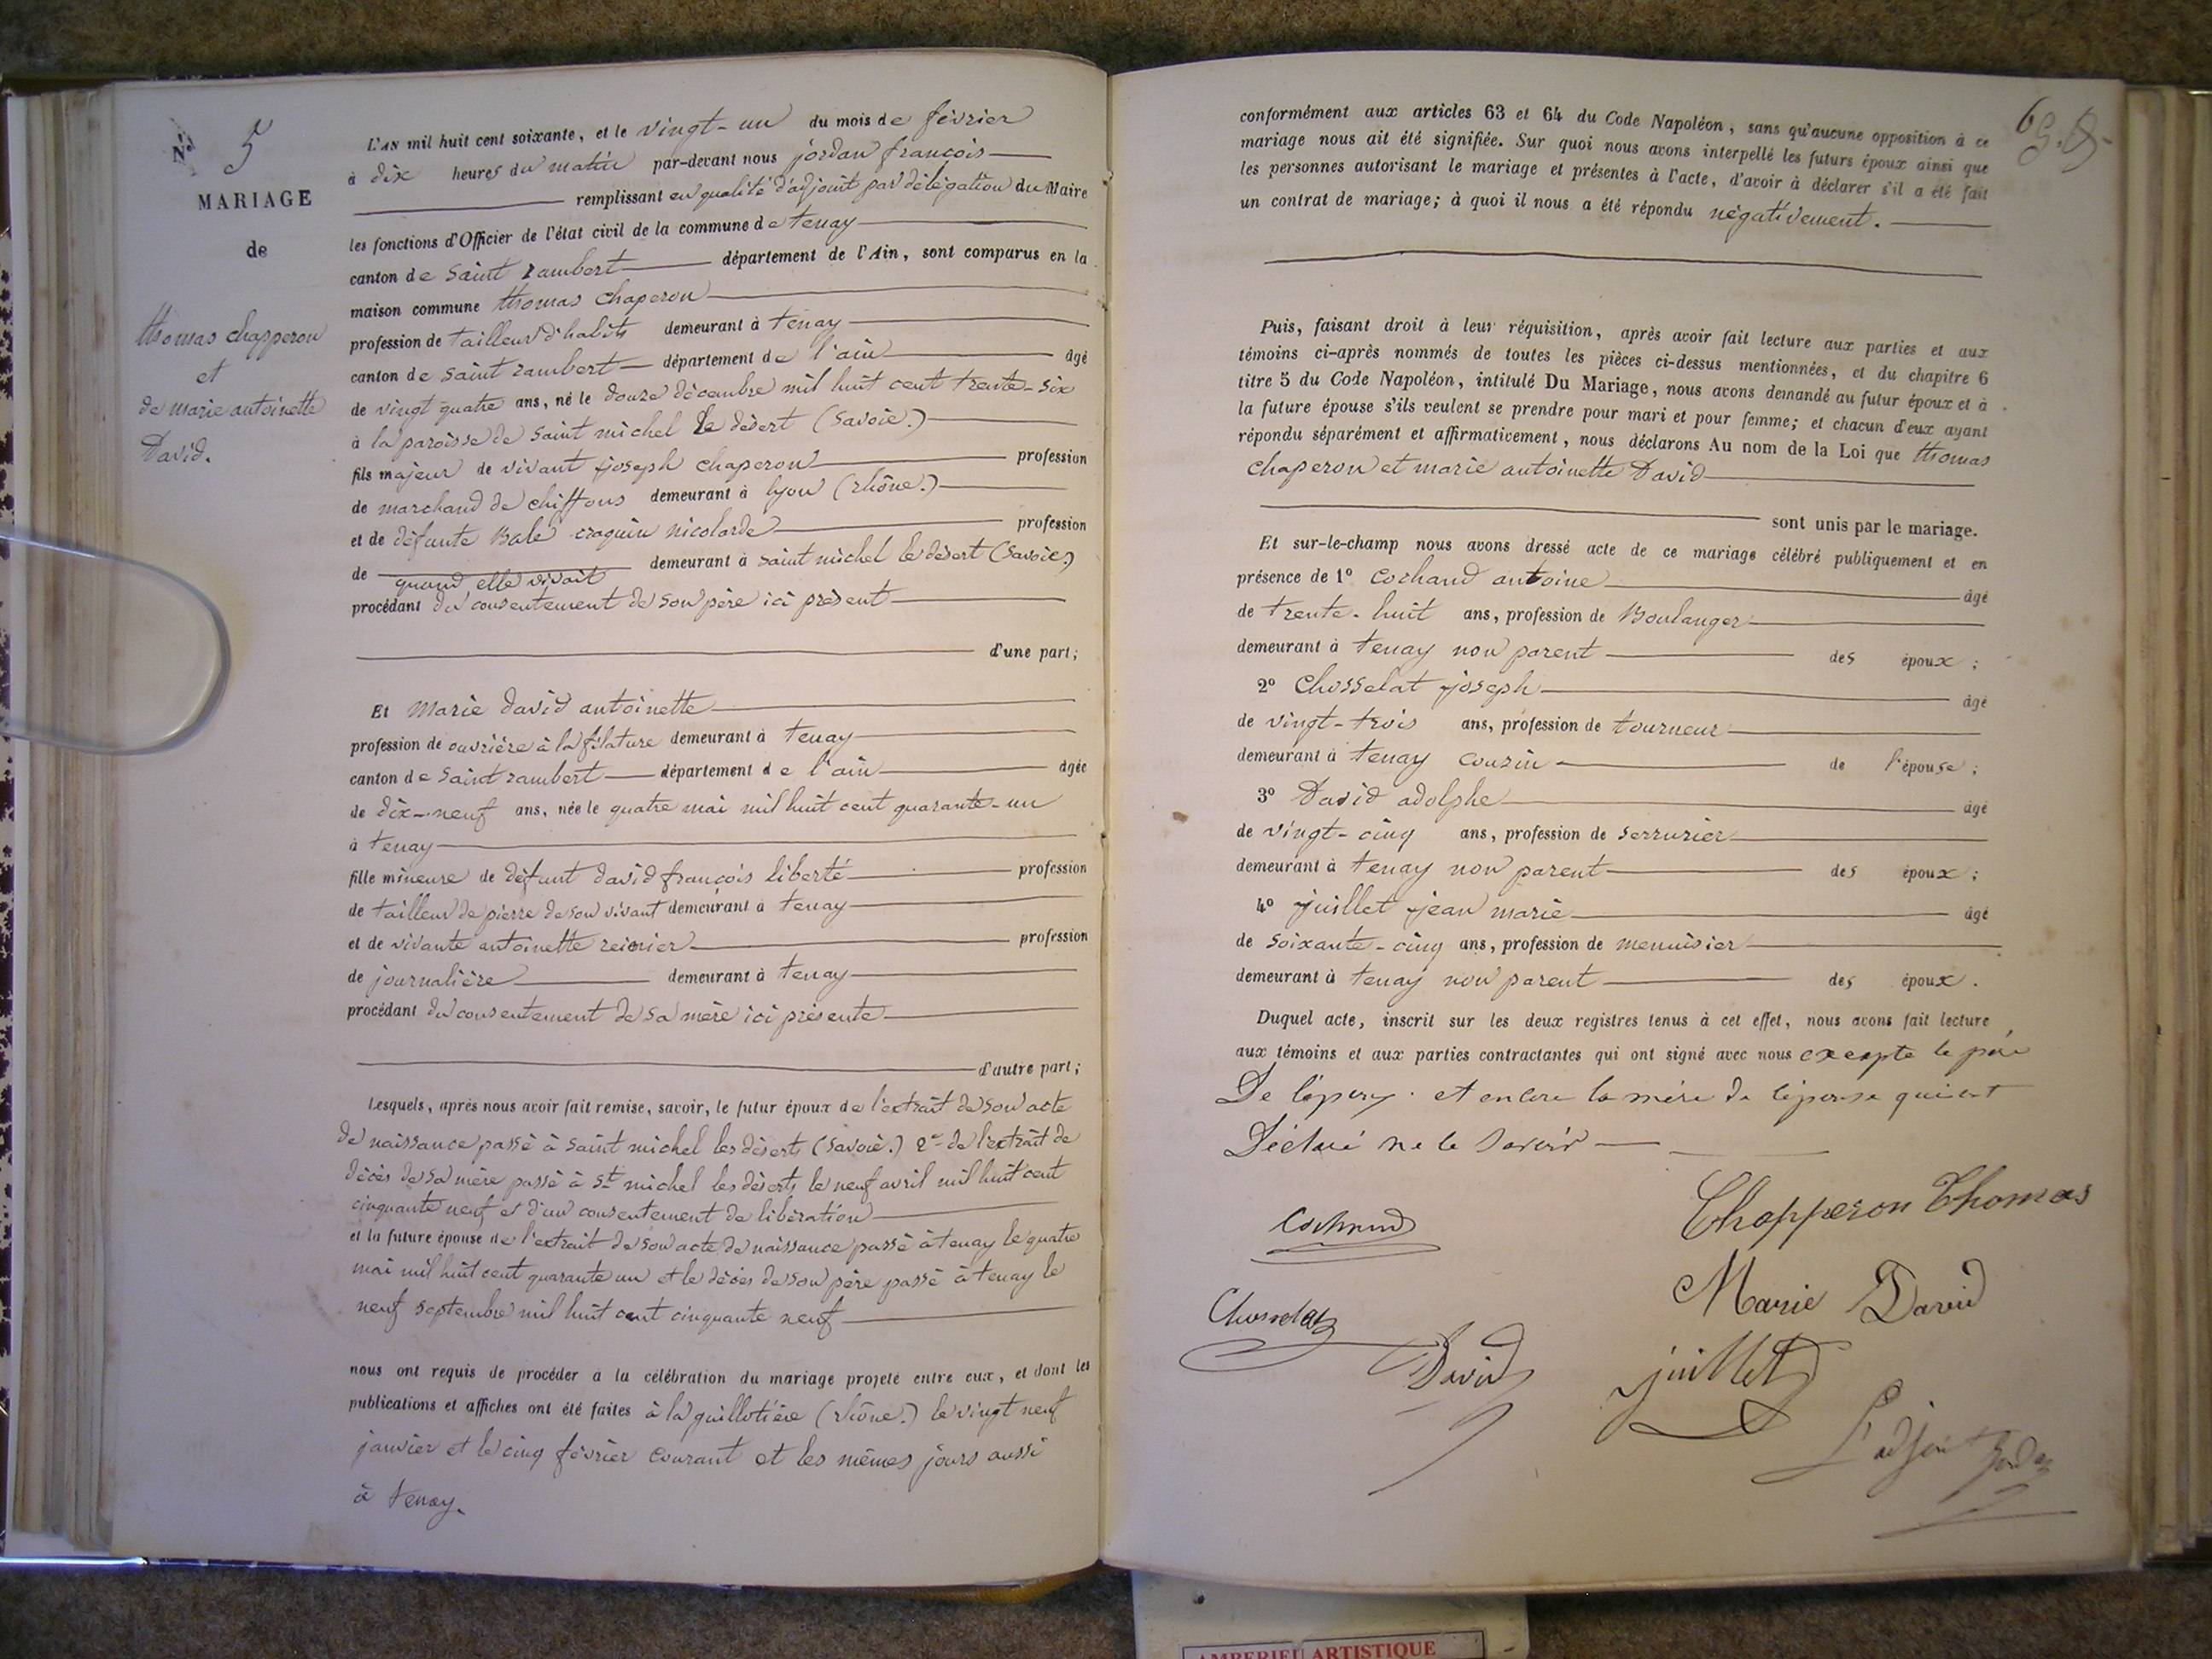 N° 5
MARIAGE
de
thomas chapperon
et
de marie antoinette
David.
L'AN mil huit cent soixante, et le vingt-un du mois de février
à dix heures du matin par-devant nous jordan françois
remplissant en qualité d'adjoint par délégation du Maire
les fonctions d'Officier de l'état civil de la commune de tenay
canton de Saint rambert département de l'Ain, sont comparus en la
maison commune thomas chaperon
profession de tailleur d'habits demeurant à tenay
canton de saint rambert département de l'ain âgé
de vingt quatre ans, né le douze décembre mil huit cent trente-six
à la paroisse de saint michel le désert (savoie.)
fils majeur de vivant joseph chaperon profession
de marchand de chiffons demeurant à lyon (rhône.)
et de défunte Balé craquin nicolarde profession
de quand elle vivait demeurant à saint michel le désert (savoie)
procédant du consentement de son père ici présent
d'une part;
Et Marie david antoinette
profession de ouvrière à la filature demeurant à tenay
canton de saint rambert département de l'ain âgée
de dix-neuf ans, née le quatre mai mil huit cent quarante-un
à tenay
fille mineure de défunt david françois liberté profession
de tailleur de pierre de son vivant demeurant à tenay
et de vivante antoinette reinier profession
de journalière demeurant à tenay
procédant du consentement de sa mère ici présente
d'autre part;
Lesquels, après nous avoir fait remise, savoir, le futur époux de l'extrait de son acte
de naissance passé à saint michel les déserts (savoie.) 2° de l'extrait de
décès de sa mère passé à st michel les déserts le neuf avril mil huit cent
cinquante neuf et d'un consentement de libération
et la future épouse de l'extrait de son acte de naissance passé à tenay le quatre
mai mil huit cent quarante un et le décès de son père passé à tenay le
neuf septembre mil huit cent cinquante neuf
nous ont requis de procéder à la célébration du mariage projeté entre eux, et dont les
publications et affiches ont été faites à la guillotière (rhône.) le vingt neuf
janvier et le cinq février courant et les mêmes jours aussi
à tenay.
6
conformément aux articles 63 et 64 du Code Napoléon, sans qu'aucune opposition à ce
mariage nous ait été signifiée. Sur quoi nous avons interpellé les futurs époux ainsi que
les personnes autorisant le mariage et présentes à l'acte, d'avoir à déclarer s'il a été fait
un contrat de mariage; à quoi il nous a été répondu négativement.
Puis, faisant droit à leur réquisition, après avoir fait lecture aux parties et aux
témoins ci-après nommés de toutes les pièces ci-dessus mentionnées, et du chapitre 6
titre 5 du Code Napoléon, intitulé Du Mariage, nous avons demandé au futur époux et à
la future épouse s'ils veulent se prendre pour mari et pour femme; et chacun d'eux ayant
répondu séparément et affirmativement, nous déclarons Au nom de la Loi que thomas
chaperon et marie antoinette David
sont unis par le mariage.
Et sur-le-champ nous avons dressé acte de ce mariage célébré publiquement et en
présence de 1° Cochand antoine âgé
de trente-huit ans, profession de Boulanger
demeurant à tenay non parent des époux;
2° Chosselat joseph âgé
de vingt-trois ans, profession de tourneur
demeurant à tenay cousin de l'épouse;
3° David adolphe âgé
de vingt-cinq ans, profession de serrurier
demeurant à tenay non parent des époux;
4° juillet jean marie âgé
de soixante-cinq ans, profession de menuisier
demeurant à tenay non parent des époux.
Duquel acte, inscrit sur les deux registres tenus à cet effet, nous avons fait lecture
aux témoins et aux parties contractantes qui ont signé avec nous excepte le père
De l'epoux et encore la mère de l'epouse qui ont
Déclaré ne le Savoir
Cochand
Chapperon Thomas
Marie David
Chosselat
David
juillet
L'adjoint Jordan
AMBERIEU ARTISTIQUE